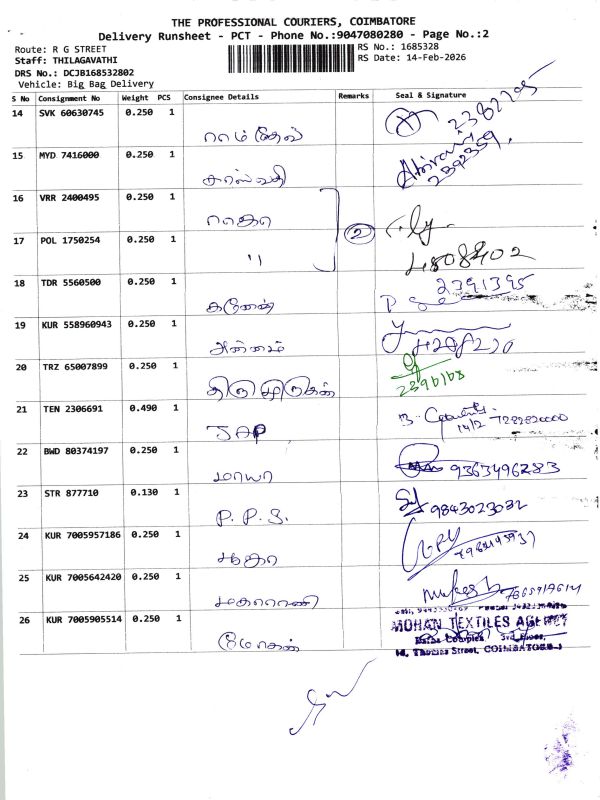 THE PROFESSIONAL COURIERS, COIMBATORE
Delivery Runsheet - PCT - Phone No.:9047080280 - Page No.:2
Route: R G STREET
RS No.: 1685328
Staff: THILAGAVATHI
RS Date: 14-Feb-2026
DRS No.: DCJB168532802
Vehicle: Big Bag Delivery
S No Consignment No Weight PCS Consignee Details Remarks Seal & Signature
14 SVK 60630745 0.250 1
ராம்தேவ்
15 MYD 7416000 0.250 1
சரஸ்வதி
16 VRR 2400495 0.250 1
2
17 POL 1750254 0.250 1
"
4808402
18 TDR 5560500 0.250 1
2391395
கணேஷ்
19 KUR 558960943 0.250 1
20 TRZ 65007899 0.250 1
திருமுருகன்
21 TEN 2306691 0.490 1
JAP
14/2
22 BWD 80374197 0.250 1
மாயா 9363496283
23 STR 877710 0.130 1
P. P. S. 9843023032
24 KUR 7005957186 0.250 1
25 KUR 7005642420 0.250 1
மகாராணி
26 KUR 7005905514 0.250 1
MOHAN TEXTILES AGENCY
மோகன்
Complex, 3rd Floor,
Thomas Street, COIMBATORE-1